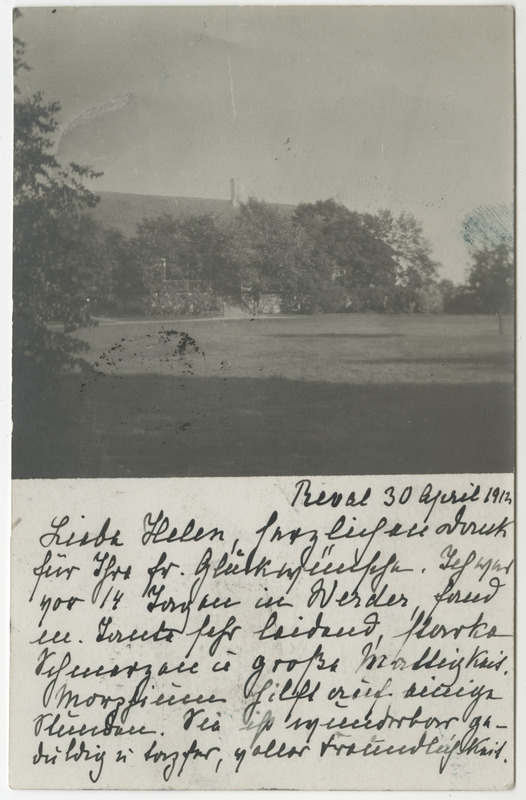 Reval 30 April 1912
Liebe Helen, herzlichen Dank
für Ihre fr. Glückwünsche. Ich war
vor 14 Tagen in Werder, fand
m. Tante sehr leidend, starke
Schmerzen u große Mattigkeit.
Morphium hilft auf einige
Stunden. Sie ist wunderbar ge-
duldig u tapfer, voller Freundlichkeit.